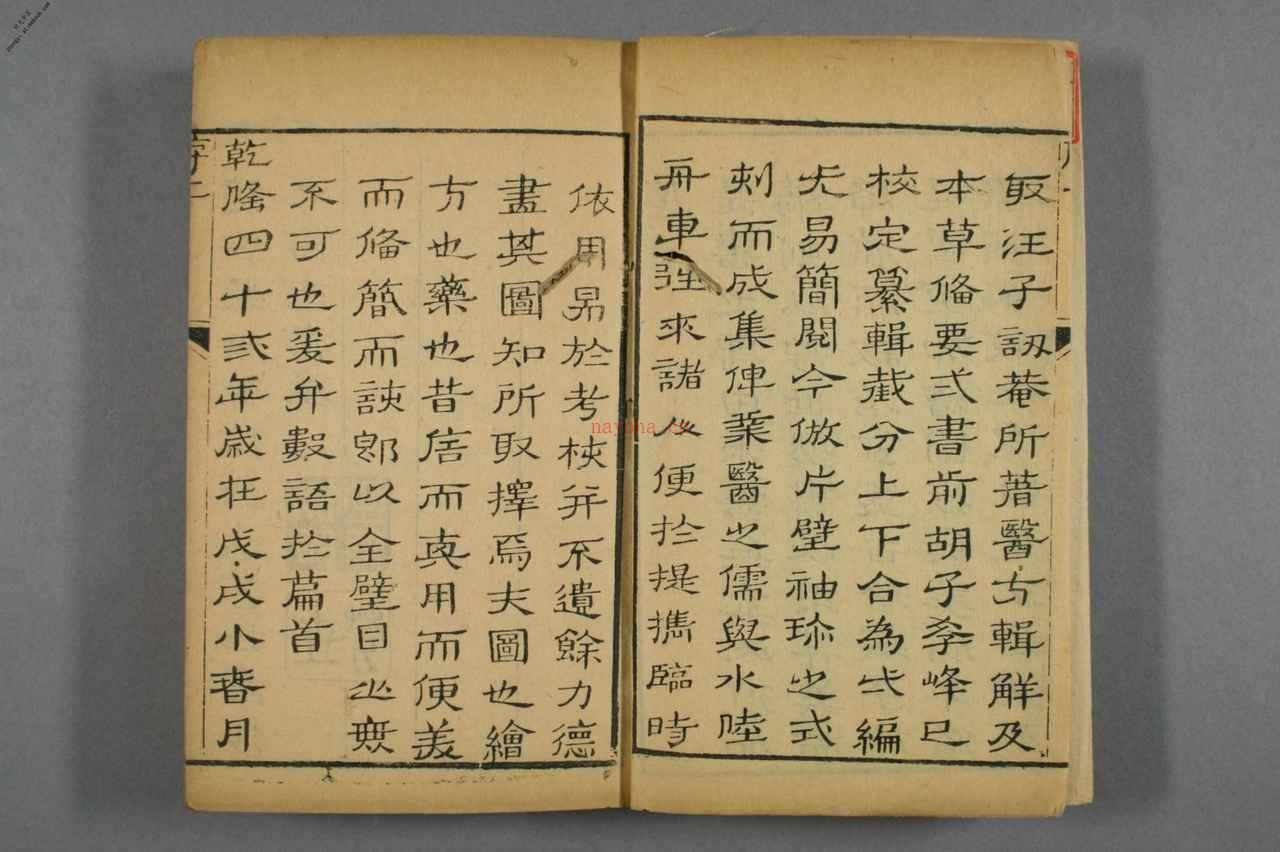 取汪子訒菴所著醫方輯解及
本草俻要弍書前胡子季峰已
校定纂輯截分上下合為弌編
尤易簡閱今倣片璧袖珍之式
刻而成集俾業醫之儒與水陸
舟車往來諸人便扵提攜臨時
依用易於考校并不遺餘力德
盡其圖知所取擇焉夫圖也繪
方也藥也昔信而真用而便美
而俻簡而該郎以全璧目之無
不可也爰弁數語扵篇首
乾隆四十弍年歲在戊戌小春月
nayona.cn